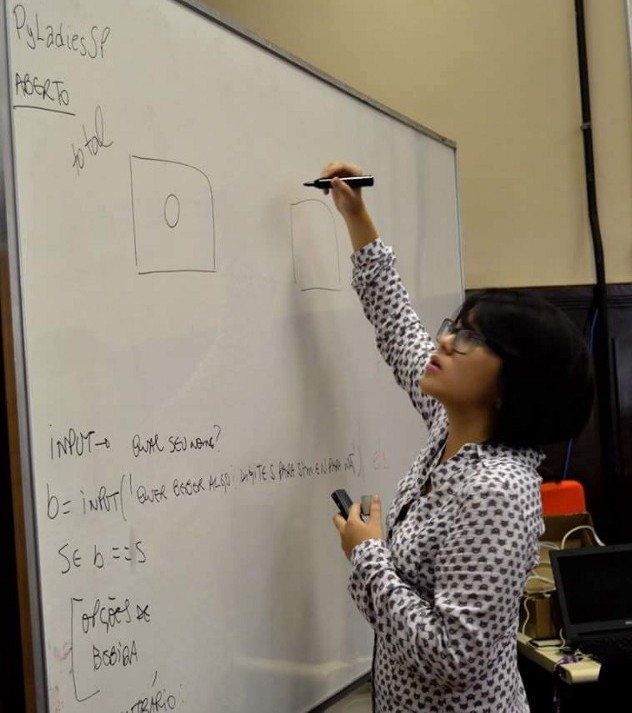 PyLadiesSP
ABERTO
total
O
INPUT → QUAL SEU NOME?
b = INPUT('QUER BEBER ALGO? DIGITE S PARA SIM E N PARA
SE b == S
OPÇÕES DE
BEBIDA